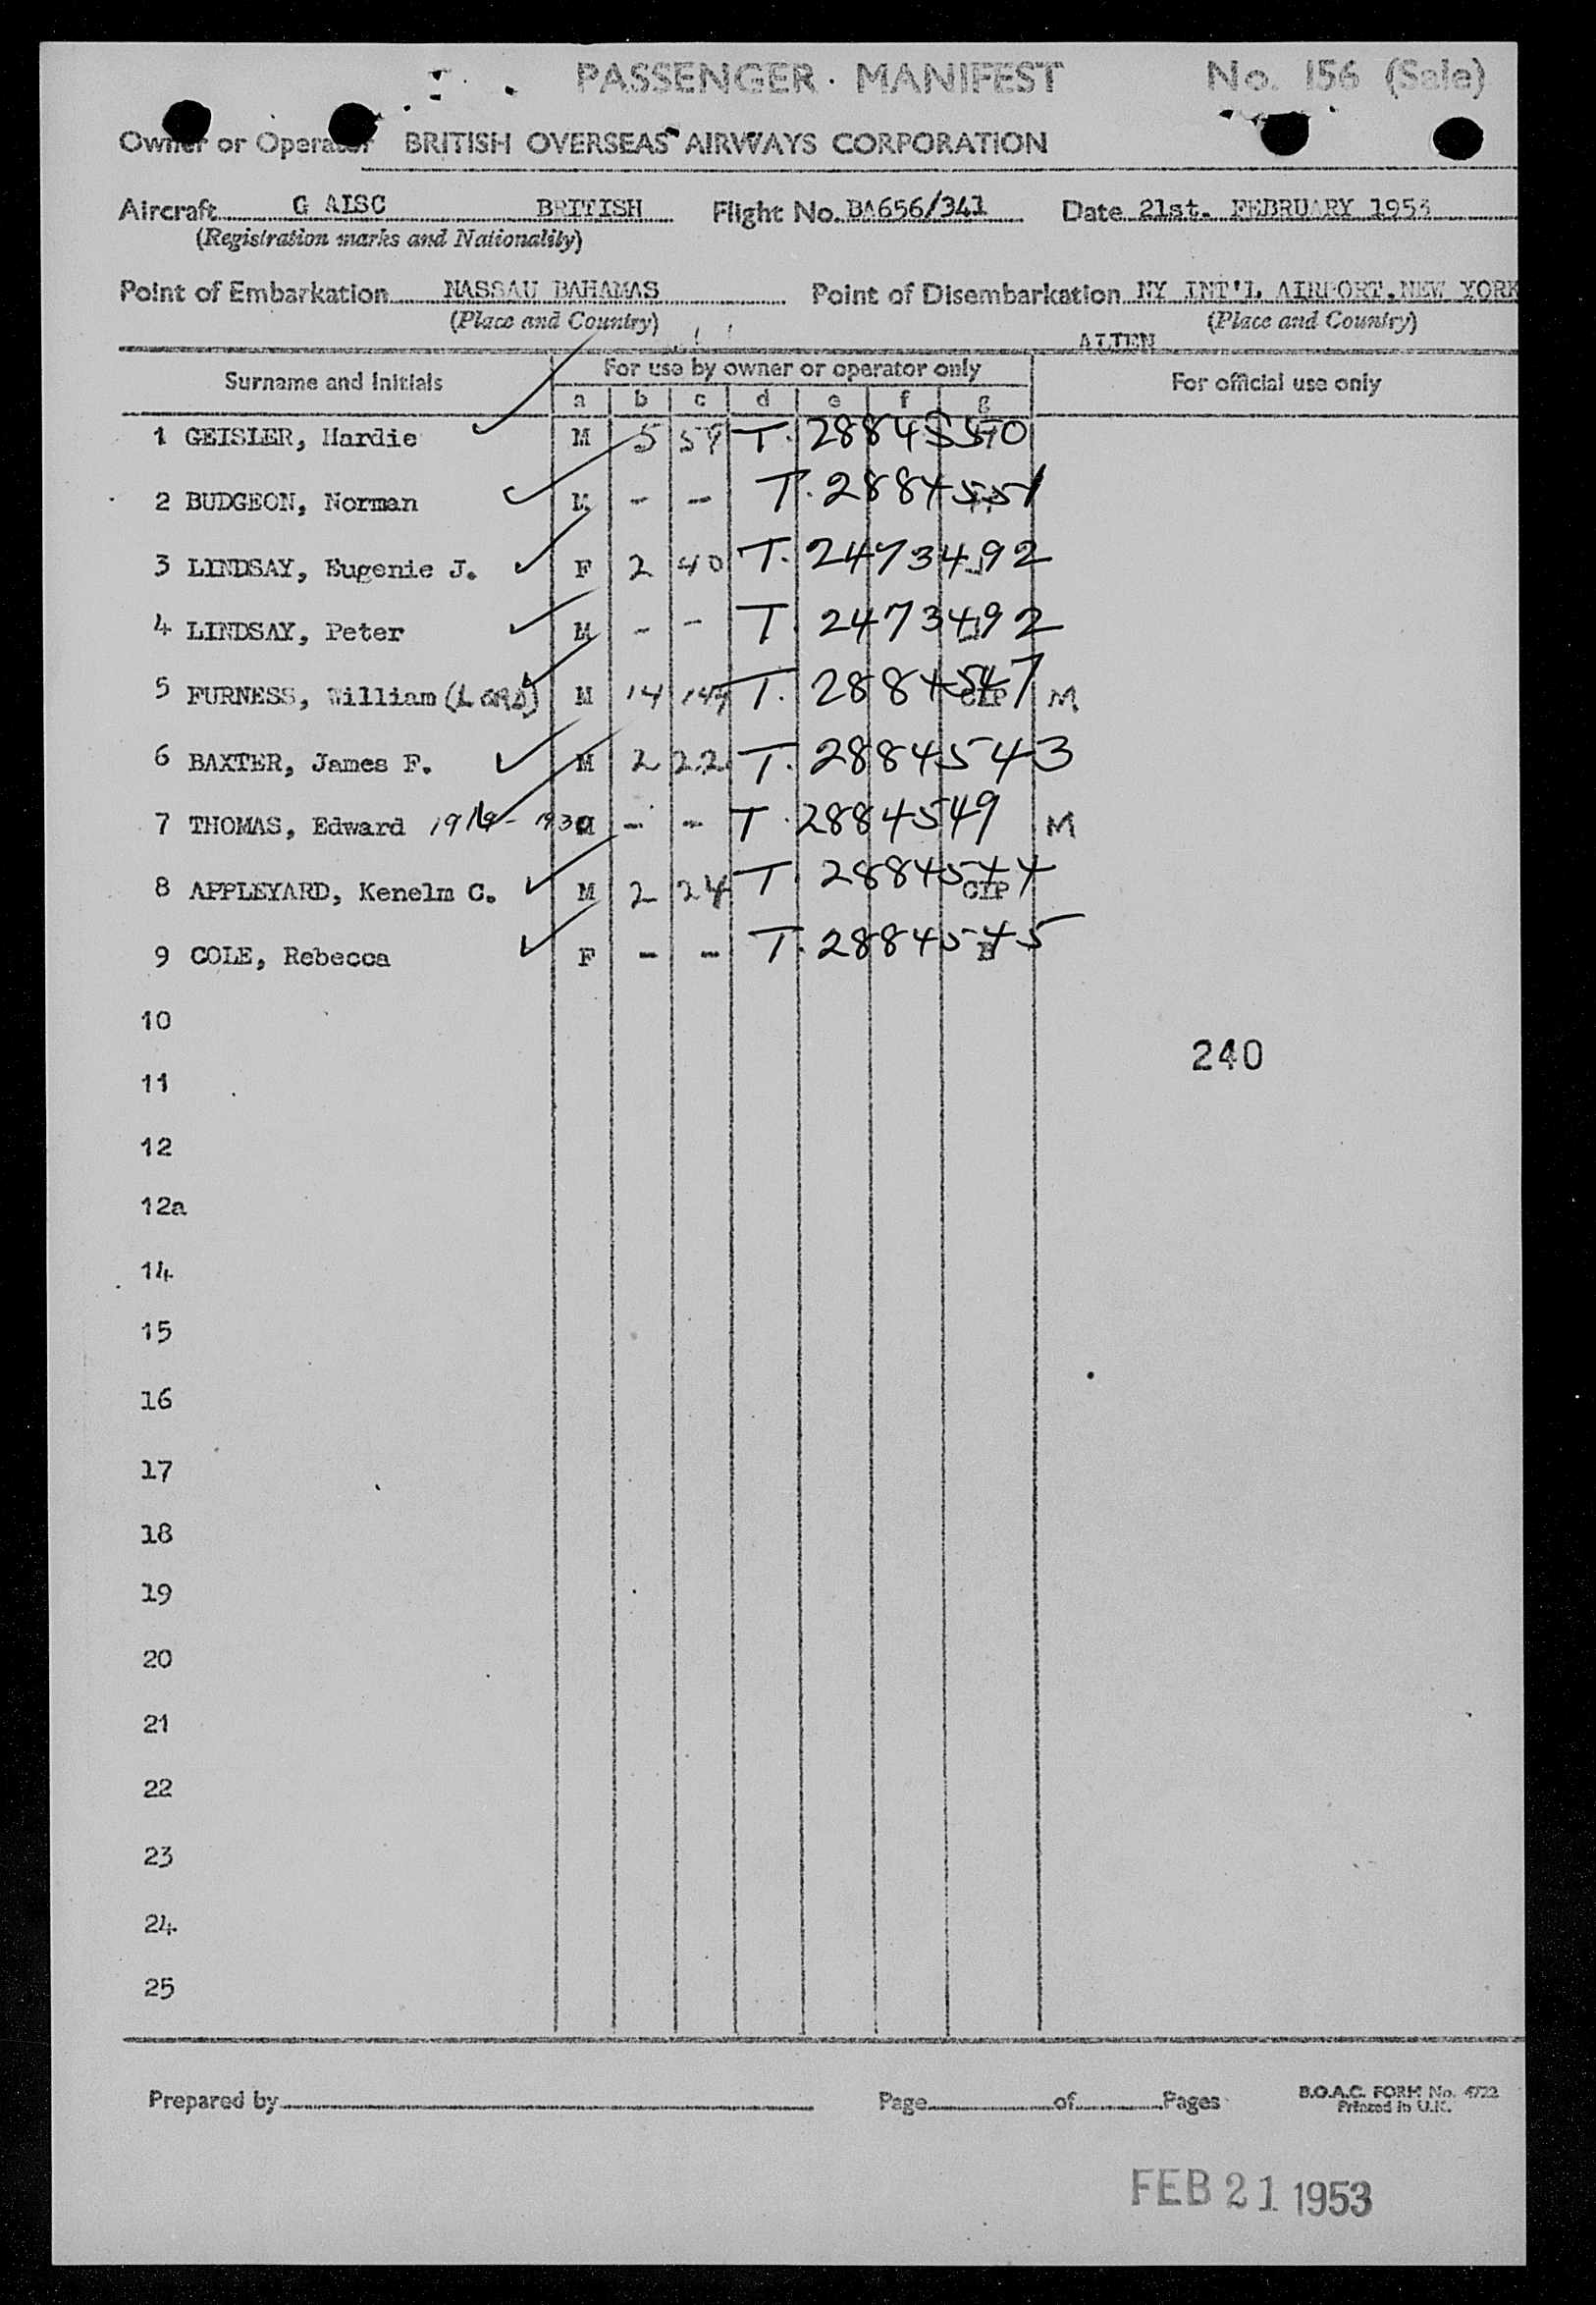 PASSENGER · MANIFEST No. 156 (Sale)
Owner or Operator BRITISH OVERSEAS AIRWAYS CORPORATION
Aircraft G AISC BRITISH Flight No. BA656/341 Date 21st. FEBRUARY 1953
(Registration marks and Nationality)
Point of Embarkation NASSAU BAHAMAS Point of Disembarkation NY INT'L AIRPORT, NEW YORK
(Place and Country) (Place and Country)
ALIEN
Surname and Initials For use by owner or operator only For official use only
a b c d e f g
1 GEISLER, Hardie M 5 59 T. 2884550
2 BUDGEON, Norman M - - T. 2884551
3 LINDSAY, Eugenie J. F 2 40 T. 2473492
4 LINDSAY, Peter M - - T. 2473492
5 FURNESS, William (LORD) M 14 T. 2884547 CIP M
6 BAXTER, James F. M 2 22 T. 2884543
7 THOMAS, Edward M - - T. 2884549 M
8 APPLEYARD, Kenelm C. M 2 24 T. 2884544 CIP
9 COLE, Rebecca F - - T. 2884545
10
240
11
12
12a
14
15
16
17
18
19
20
21
22
23
24
25
Prepared by Page of Pages B.O.A.C. FORM No. 4722
Printed in U.K.
FEB 21 1953